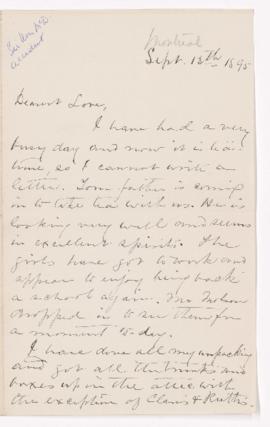 Montreal
Sept. 18th 1895
Dearest Love,
I have had a very
busy day and now it is tea-
time, so I cannot write a
letter. Your father is coming
in to take tea with us. He is
looking very well and seems
in excellent spirits. The
girls have got to work and
appear to enjoy being back
a school again. Mr.
dropped in to see them for
a moment to-day.
I have done all my unpacking
and got all the trunks and
boxes up in the attic with
the exception of Clare's & Ruth's.